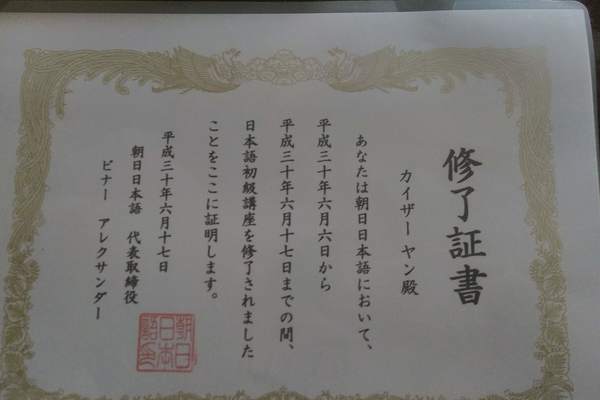 修了証書
カイザー ヤン 殿
あなたは朝日日本語において、
平成三十年六月六日から
平成三十年六月十七日までの間、
日本語初級講座を修了されました
ことをここに証明します。
平成三十年六月十七日
朝日日本語 代表取締役
ビナー アレクサンダー
朝日
日本
語